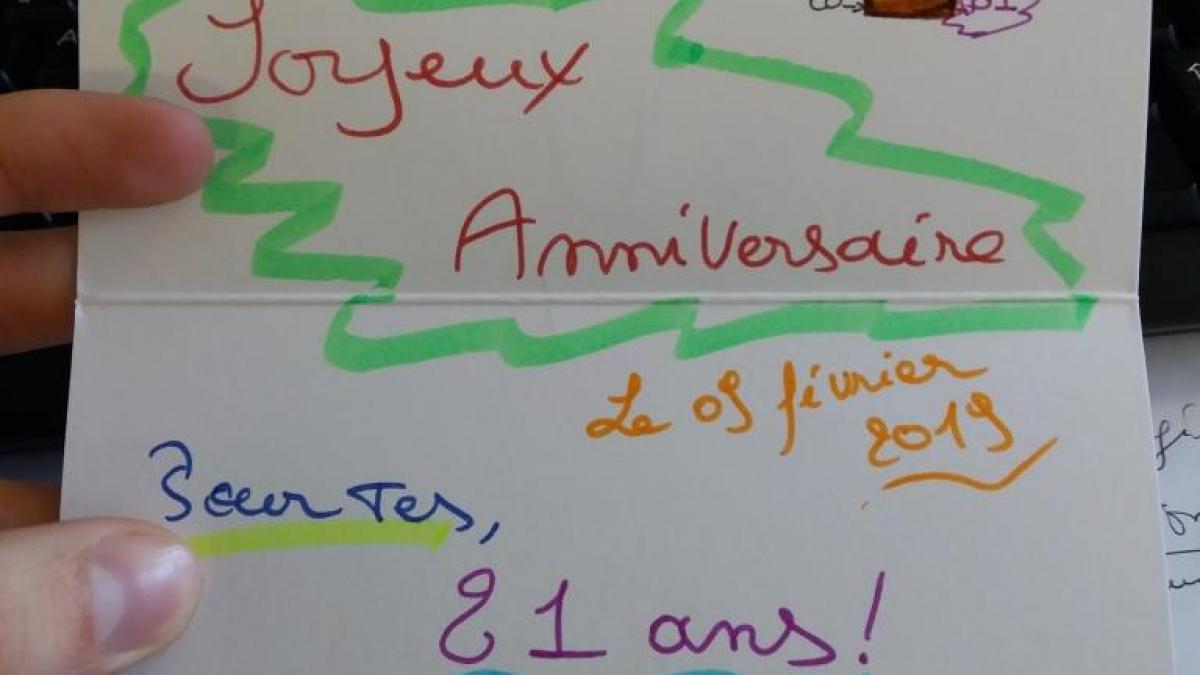 Joyeux
Anniversaire
Le 09 février
2019
Pour Tes,
21 ans!